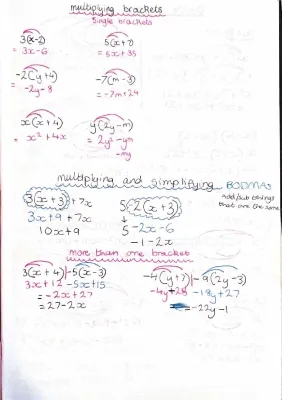 multiplying brackets
single brackets
3(x-2)
= 3x-6
5(x+7)
= 5x+35
-2(y+4)
= -2y-8
-7(m-3)
= -7m+21
x(x+4)
= x² + 4x
y(2y-m)
= 2y² - ym
-my
multiplying and simplifying BODMAS
add/sub things
that are the same
3(x+3)+7x
3x+9+7x
10x+9
5-2(x+3)
5-2x-6
-1-2x
more than one bracket
3(x+4)-5(x-3)
3x+12-5x+15
= -2x+27
= 27-2x
-4(y+7)-9(2y-3)
-4y+28 -18y+27
= -22y-1